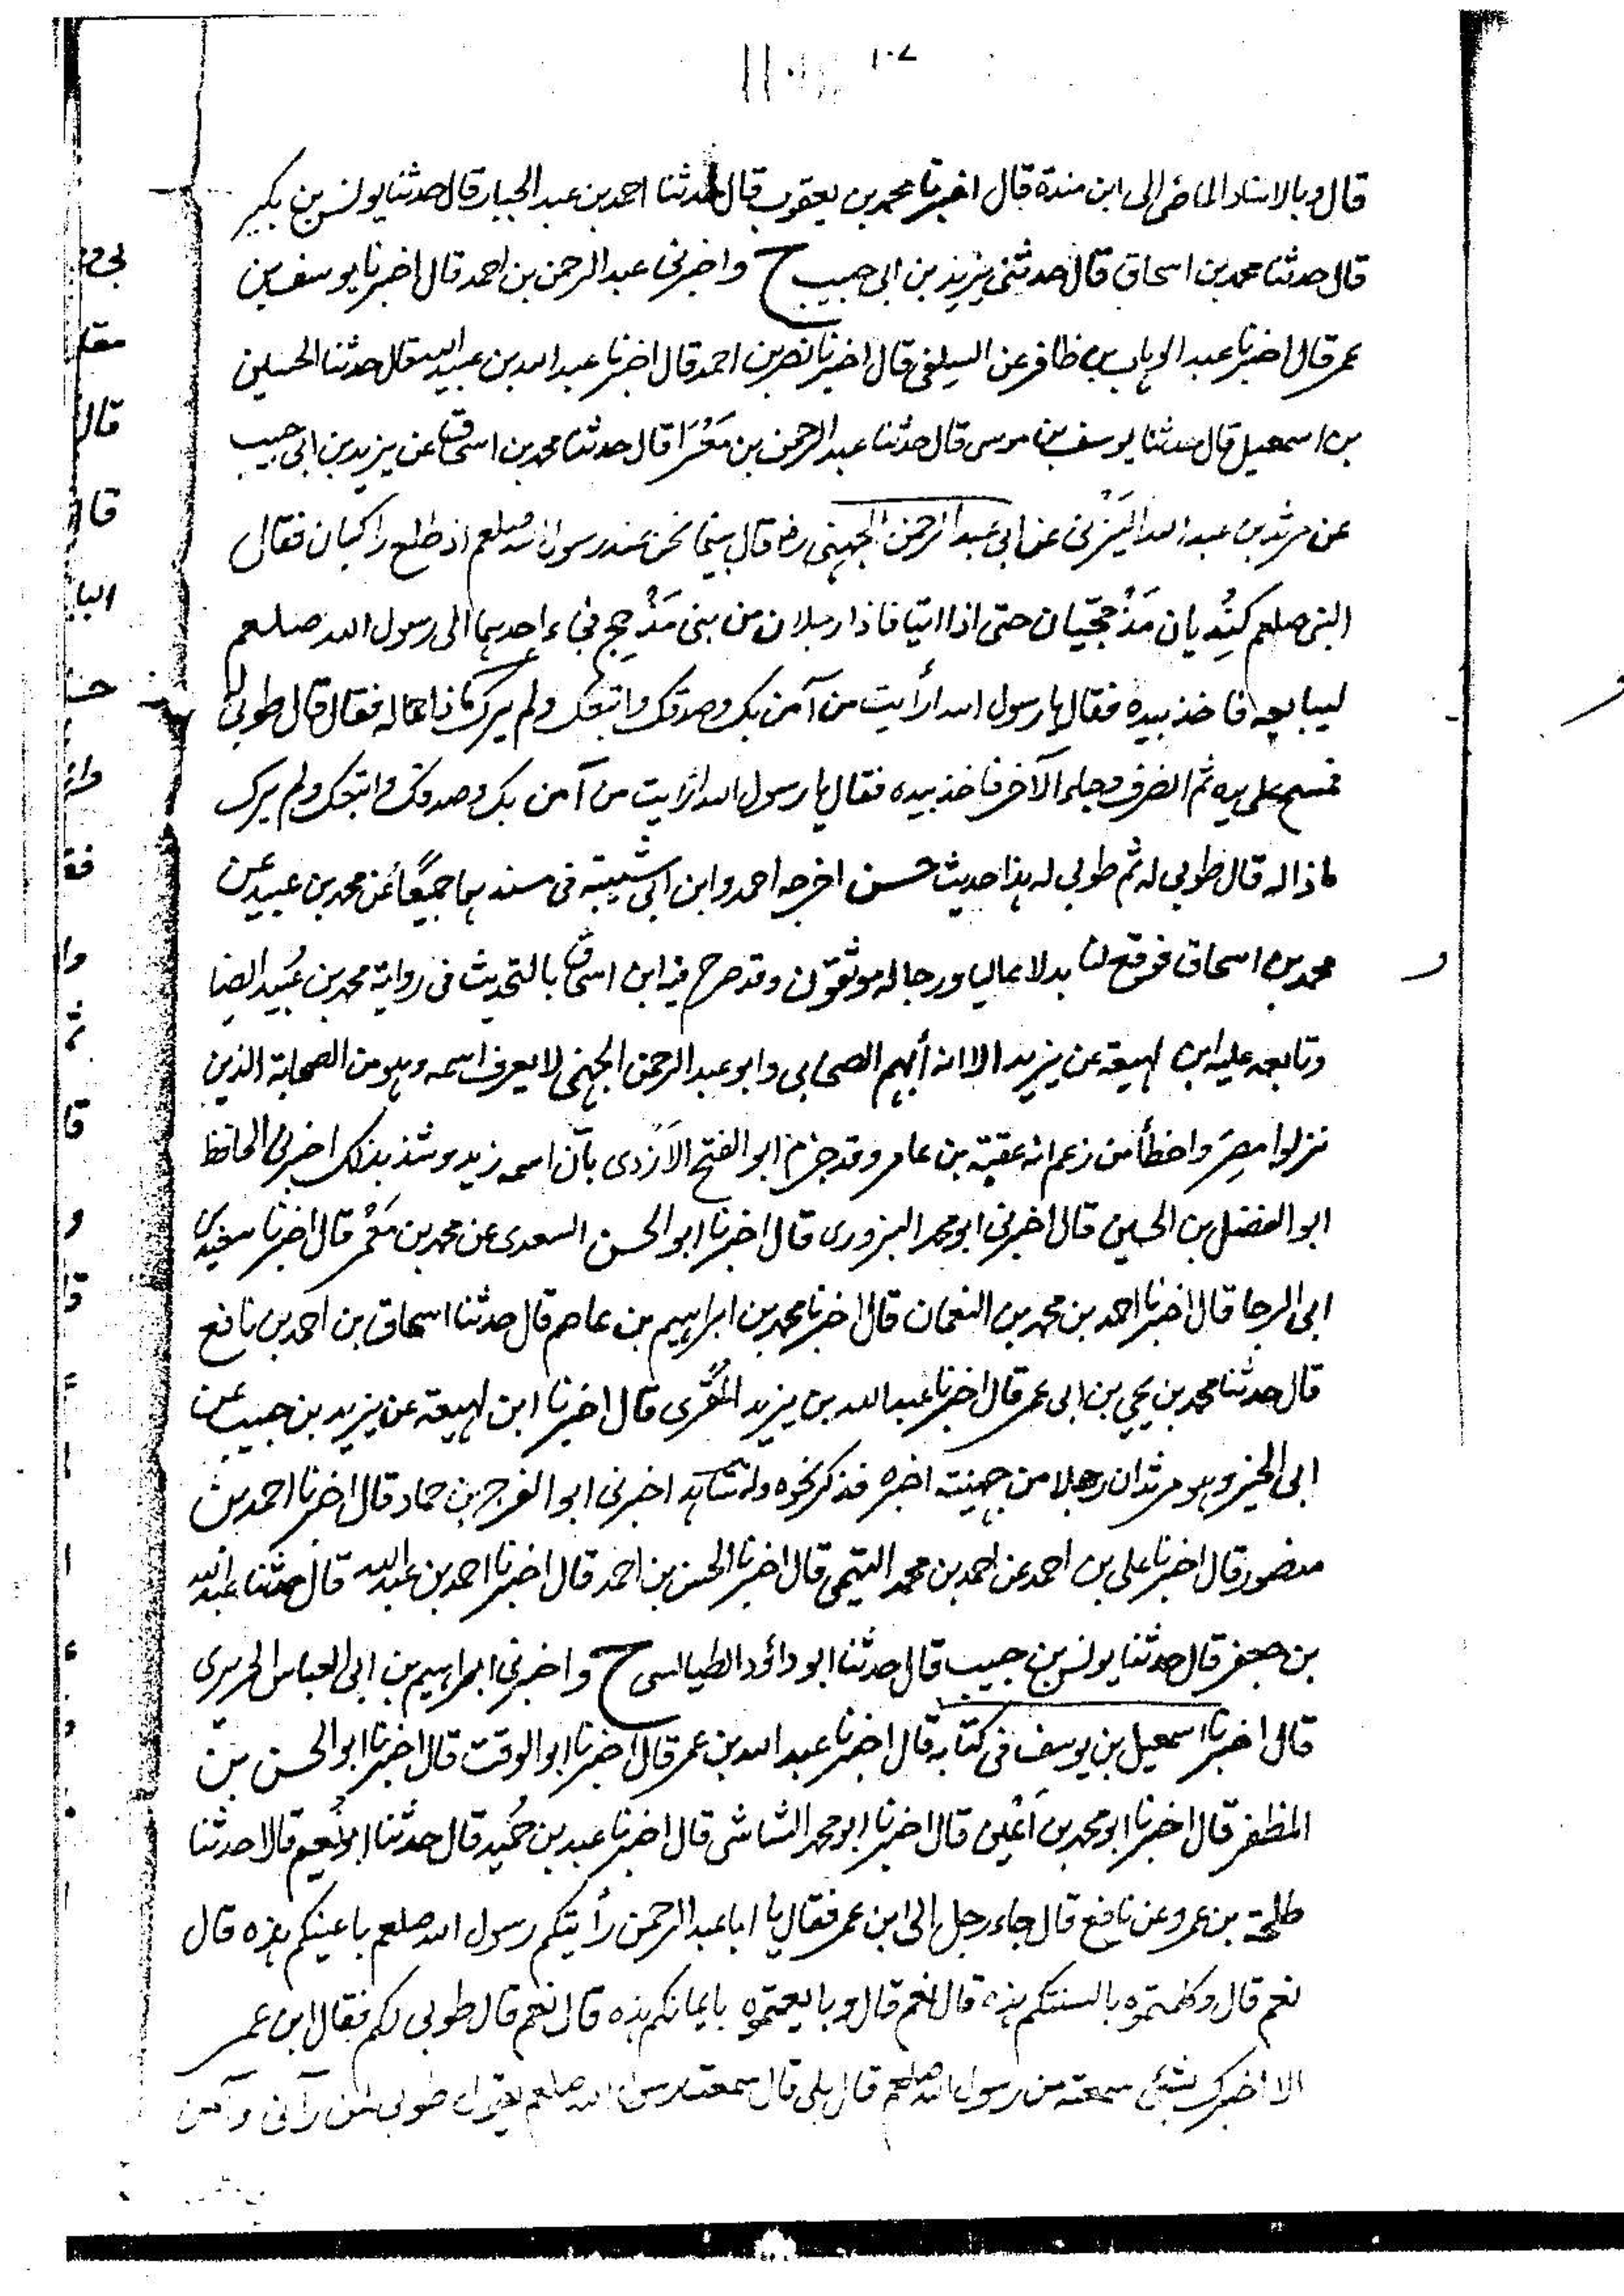 ١٠٧
قال وبالاسناد الماضى الى ابن مندة قال اخبرنا محمد بن يعقوب قال حدثنا احمد بن عبد الجبار قال حدثنا يونس بن بكير
قال حدثنا محمد بن اسحاق قال حدثنى يزيد بن ابى حبيب ح واخبرنى عبد الرحمن بن احمد قال اخبرنا يوسف بن
عمر قال اخبرنا عبد الوهاب بن ظافر عن السلفى قال اخبرنا نصر بن احمد قال اخبرنا عبد الله بن عبيد الله قال حدثنا الحسين
بن اسمعيل قال حدثنا يوسف بن موسى قال حدثنا عبد الرحمن بن مَغْرَا قال حدثنا محمد بن اسحاق عن يزيد بن ابى حبيب
عن مرثد بن عبد الله اليَزَنى عن ابى عبد الرحمن الجهنى رض قال بينما نحن عند رسول الله صلعم اذ طلع راكبان فقال
النبى صلعم كِنْدِيان مَذْحجّيان حتى اذا اتيا فاذا رجلان من بنى مَذْحِج فجاء احدهما الى رسول الله صلعم
ليبايعه فاخذ بيده فقال يا رسول الله أرأيت من آمن بك وصدقك واتبعك ولم يرك ماذا له فقال قال طوبى له
فمسح على يده ثم انصرف وجاء الآخر فاخذ بيده فقال يا رسول الله ارأيت من آمن بك وصدقك واتبعك ولم يرك
ماذا له قال طوبى له ثم طوبى له هذا حديث حسن اخرجه احمد وابن ابى شيبة فى مسنديهما جميعًا عن محمد بن عبيد عن
محمد بن اسحاق فوقع لنا بدلا عاليا ورجاله موثقون وقد صرح فيه ابن اسحاق بالتحديث فى رواية محمد بن عُبَيد ايضا
وتابعه عليه ابن لهيعة عن يزيد الا انه أبهم الصحابى وابو عبد الرحمن الجهنى لا يعرف اسمه وهو من الصحابة الذين
نزلوا مصِرَ واخطأ من زعم انه عقبة بن عامر وقد جزم ابو الفتح الاَزْدى بأنّ اسمه زيد وشذ بذلك اخبرنى الحافظ
ابو الفضل بن الحسين قال اخبرنى ابو محمد البزورى قال اخبرنا ابو الحسن السعدى عن محمد بن مَعْمَر قال اخبرنا سعيد بن
ابى الرجا قال اخبرنا احمد بن محمد بن النعمان قال اخبرنا محمد بن ابراهيم بن عاصم قال حدثنا اسحاق بن احمد بن نافع
قال حدثنا محمد بن يحيى بن ابى عمر قال اخبرنا عبد الله بن يزيد المقرى قال اخبرنا ابن لهيعة عن يزيد بن حبيب عن
ابى الخير وهو مرثد ان رجلا من جهينة اخبره فذكر نحوه وله شاهد اخبرنى ابو الفرج بن حماد قال اخبرنا احمد بن
منصور قال اخبرنا على بن احمد عن احمد بن محمد التيمى قال اخبرنا الحسن بن احمد قال اخبرنا احمد بن عبد الله قال حدثنا عبد الله
بن جعفر قال حدثنا يونس بن حبيب قال حدثنا ابو داؤد الطيالسى ح واخبرنى ابراهيم بن ابى العباس الحريرى
قال اخبرنا اسمعيل بن يوسف فى كتابه قال اخبرنا عبد الله بن عمر قال اخبرنا ابو الوقت قال اخبرنا ابو الحسن بن
المظفر قال اخبرنا ابو محمد بن اَعْيَن قال اخبرنا ابو محمد الشاشى قال اخبرنا عبد بن حُمَيد قال حدثنا ابو نُعيم قالا حدثنا
طلحة بن عمرو عن نافع قال جاء رجل الى ابن عمر فقال يا ابا عبد الرحمن رأيتم رسول الله صلعم باعينكم هذه قال
نعم قال وكلمتموه بالسنتكم هذه قال نعم قال وبايعتموه بايمانكم هذه قال نعم قال طوبى لكم فقال ابن عمر
الا اخبرك بشئ سمعته من رسول الله صلعم قال بلى قال سمعت رسول الله صلعم يقول طوبى لمن رآنى وآمن